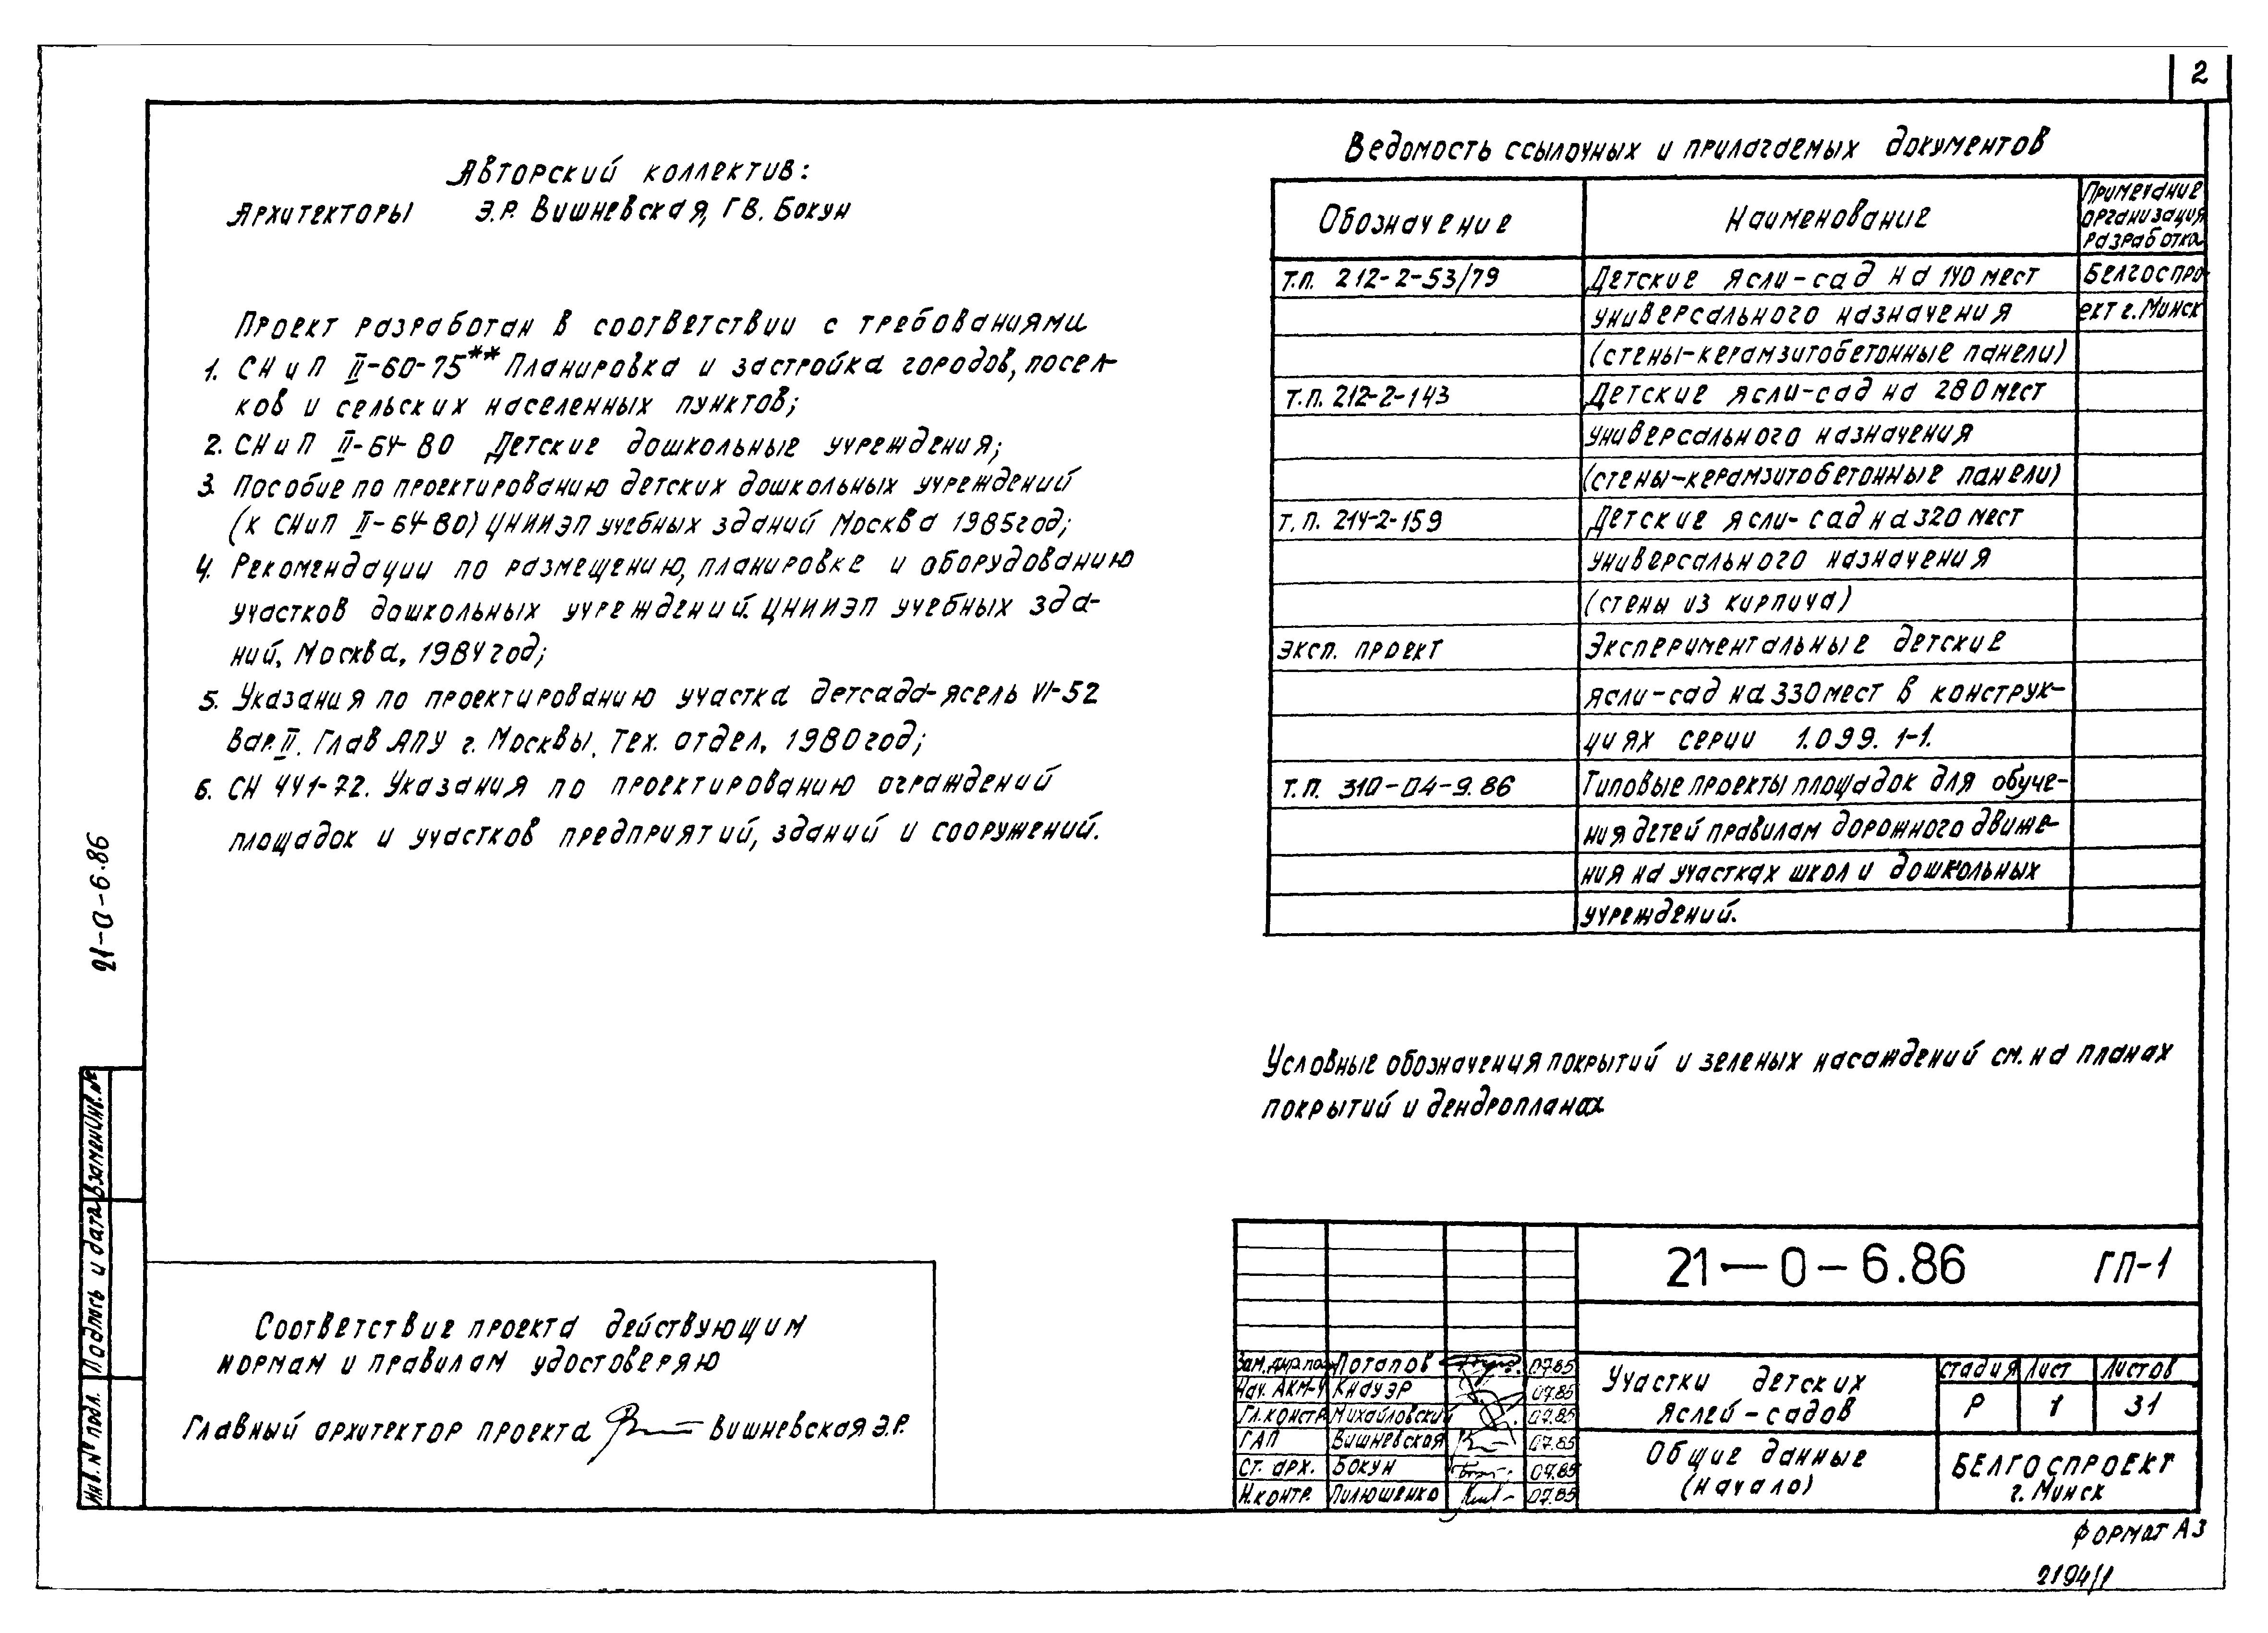 2
Авторский коллектив:
Архитекторы Э.Р. Вишневская, Г.В. Бокун
Проект разработан в соответствии с требованиями
1. СНиП II-60-75** Планировка и застройка городов, посел-
ков и сельских населенных пунктов;
2. СНиП II-64-80 Детские дошкольные учреждения;
3. Пособие по проектированию детских дошкольных учреждений
(к СНиП II-64-80) ЦНИИЭП учебных зданий Москва 1985год;
4. Рекомендации по размещению, планировке и оборудованию
участков дошкольных учреждений. ЦНИИЭП учебных зда-
ний, Москва, 1984год;
5. Указания по проектированию участка детсада-ясель VI-52
Вар. II. ГлавАПУ г. Москвы. Тех. отдел, 1980год;
6. СН 441-72. Указания по проектированию ограждений
площадок и участков предприятий, зданий и сооружений.
Ведомость ссылочных и прилагаемых документов
Обозначение Наименование Примечание организация разработка
Т.П. 212-2-53/79 Детские ясли-сад на 140 мест Белгоспро-
универсального назначения ект г.Минск
(стены-керамзитобетонные панели)
Т.П. 212-2-143 Детские ясли-сад на 280 мест
универсального назначения
(стены-керамзитобетонные панели)
Т.П. 214-2-159 Детские ясли-сад на 320 мест
универсального назначения
(стены из кирпича)
эксп. проект Экспериментальные детские
ясли-сад на 330 мест в конструк-
циях серии 1.099.1-1.
Т.П. 310-04-9.86 Типовые проекты площадок для обуче-
ния детей правилам дорожного движе-
ния на участках школ и дошкольных
учреждений.
Условные обозначения покрытий и зеленых насаждений см. на планах
покрытий и дендропланах
21-0-6.86
Взамен Инв.№
Подпись и дата
Инв. № подл.
Соответствие проекта действующим
нормам и правилам удостоверяю
Главный архитектор проекта Вишневская Э.Р.
21-0-6.86 ГП-1
Потапов 07.85
Нач. АКМ-4 Кнауэр 07.85
Гл. констр. Михайловский 07.85
ГАП Вишневская 07.85
Ст. арх. Бокун 07.85
Н.контр. Пилюшенко 07.85
Участки детских
яслей-садов
Общие данные
(начало)
стадия Лист Листов
Р 1 31
БЕЛГОСПРОЕКТ
г. Минск
Формат А3
2194/1